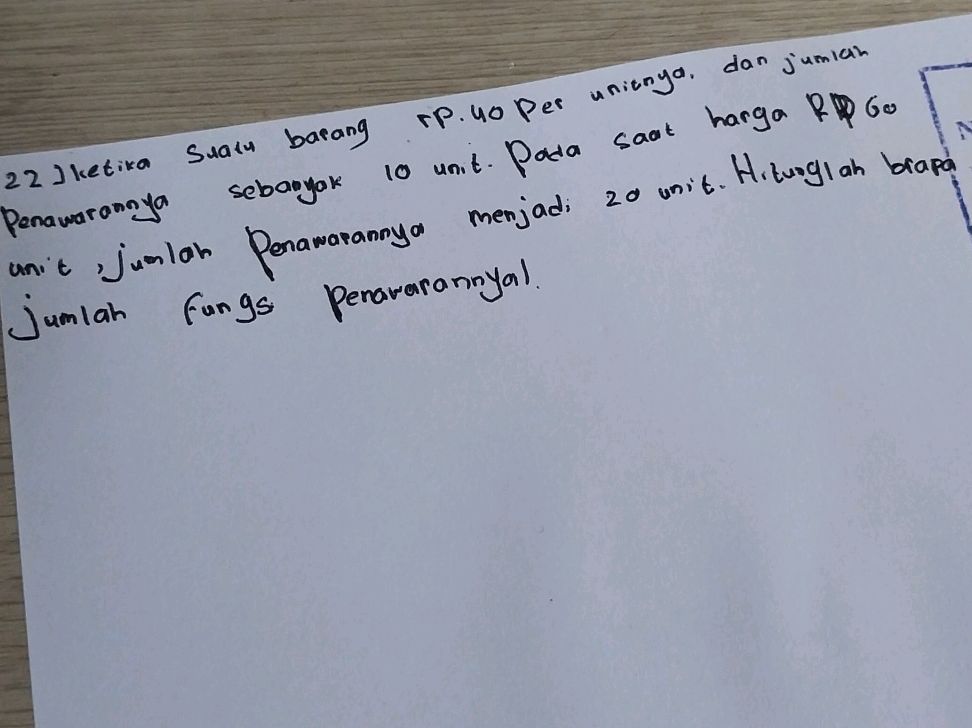 22] ketika suatu barang rp.40 per unitnya, dan jumlah
Penawarannya sebanyak 10 unit. Pada saat harga RP 60
unit, jumlah Penawarannya menjadi 20 unit. Hitunglah brapa
jumlah fungsi Penawarannya!.